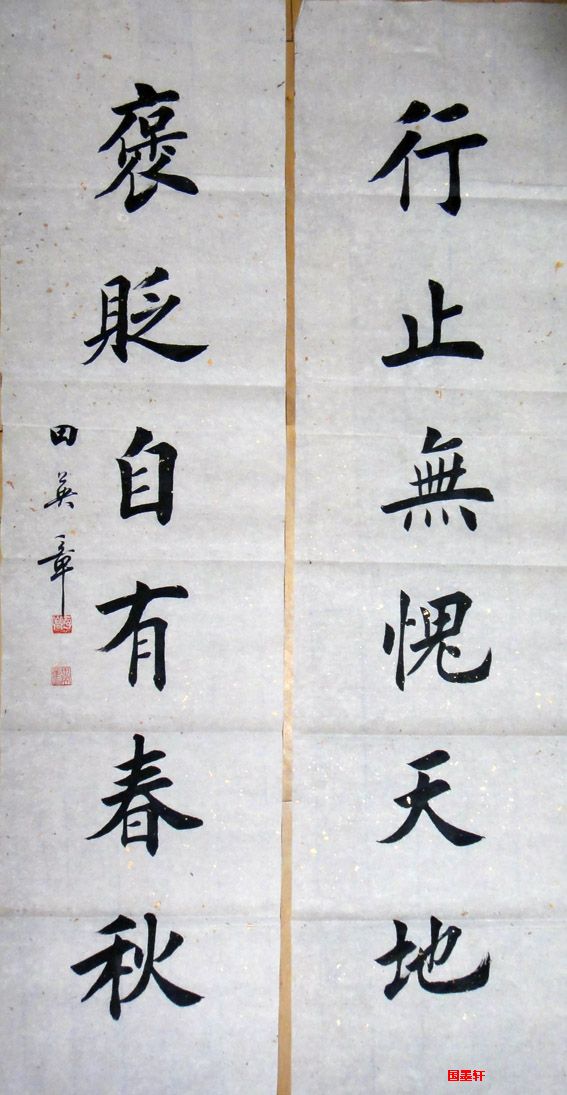 行止無愧天地
褒貶自有春秋
田英章
国墨轩